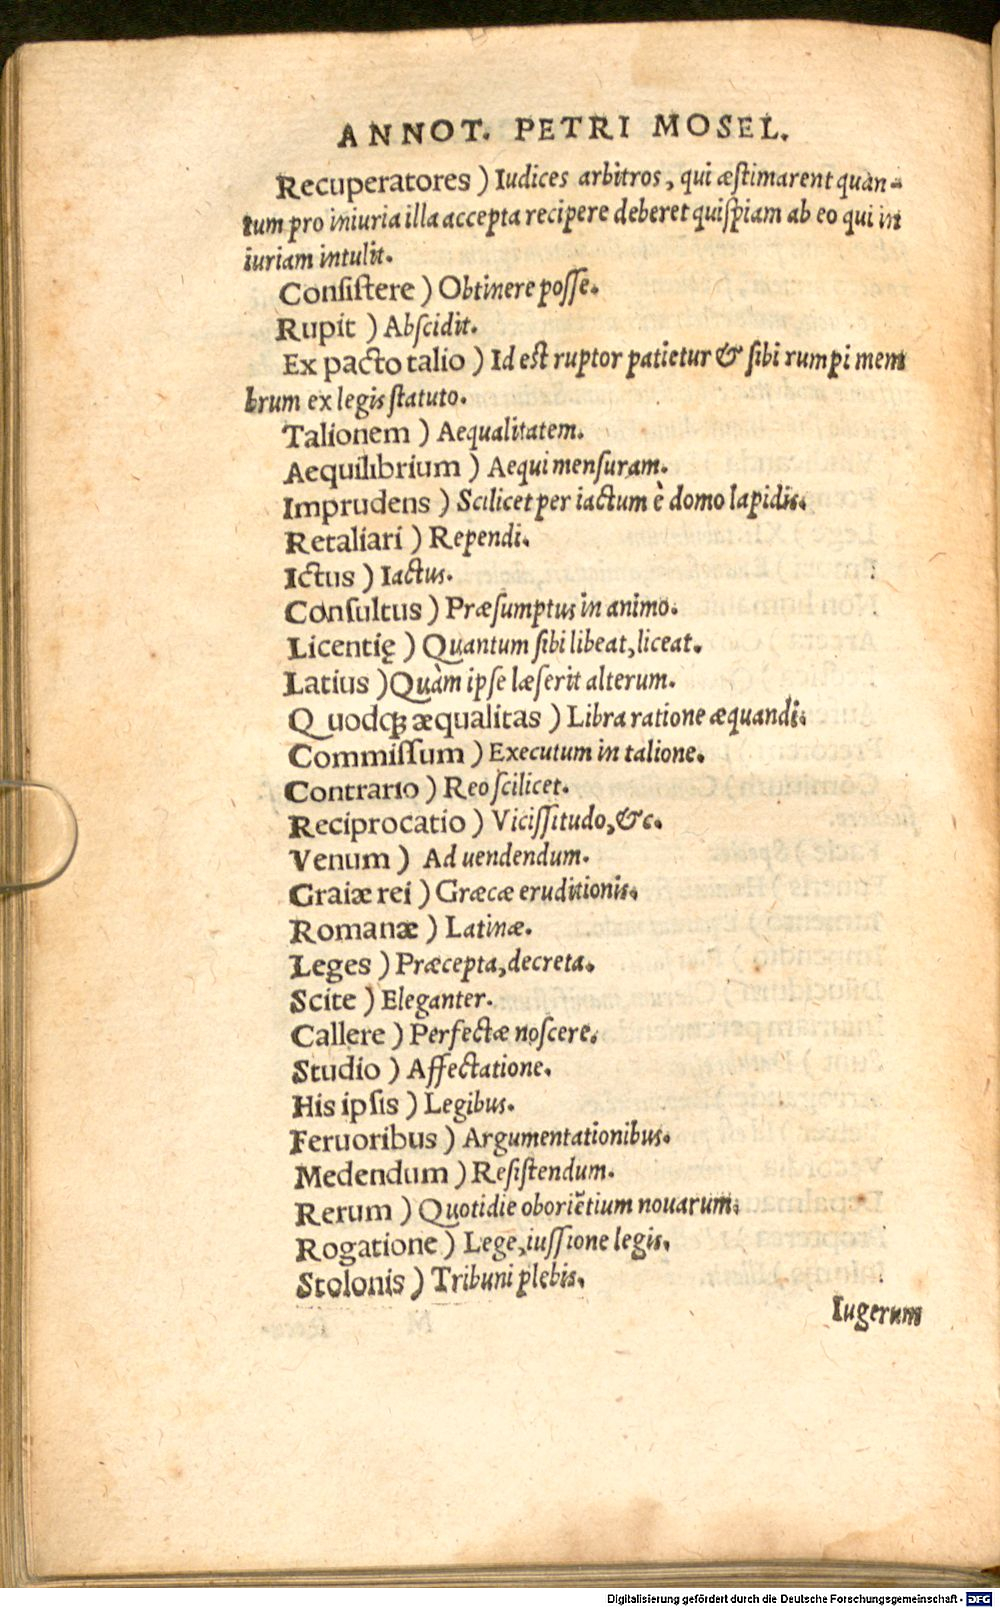 ANNOT. PETRI MOSEL.
Recuperatores ) Iudices arbitros, qui æstimarent quan-
tum pro iniuria illa accepta recipere deberet quispiam ab eo qui in
iuriam intulit.
Consistere ) Obtinere posse.
Rupit ) Abscidit.
Ex pacto talio ) Id est ruptor patietur & sibi rumpi mem
brum ex legis statuto.
Talionem ) Aequalitatem.
Aequilibrium ) Aequi mensuram.
Imprudens ) Scilicet per iactum è domo lapidis.
Retaliari ) Rependi.
Ictus ) Iactus.
Consultus ) Præsumptus in animo.
Licentię ) Quantum sibi libeat, liceat.
Latius ) Quàm ipse læserit alterum.
Quodq́; æqualitas ) Libra ratione æquandi.
Commissum ) Executum in talione.
Contrario ) Reo scilicet.
Reciprocatio ) Vicissitudo, &c.
Venum ) Ad uendendum.
Graiæ rei ) Græcæ eruditionis.
Romanæ ) Latinæ.
Leges ) Præcepta, decreta.
Scite ) Eleganter.
Callere ) Perfectæ noscere.
Studio ) Affectatione.
His ipsis ) Legibus.
Feruoribus ) Argumentationibus.
Medendum ) Resistendum.
Rerum ) Quotidie oboriẽtium nouarum.
Rogatione ) Lege, iussione legis.
Stolonis ) Tribuni plebis.
Iugerum
Digitalisierung gefördert durch die Deutsche Forschungsgemeinschaft - DFG